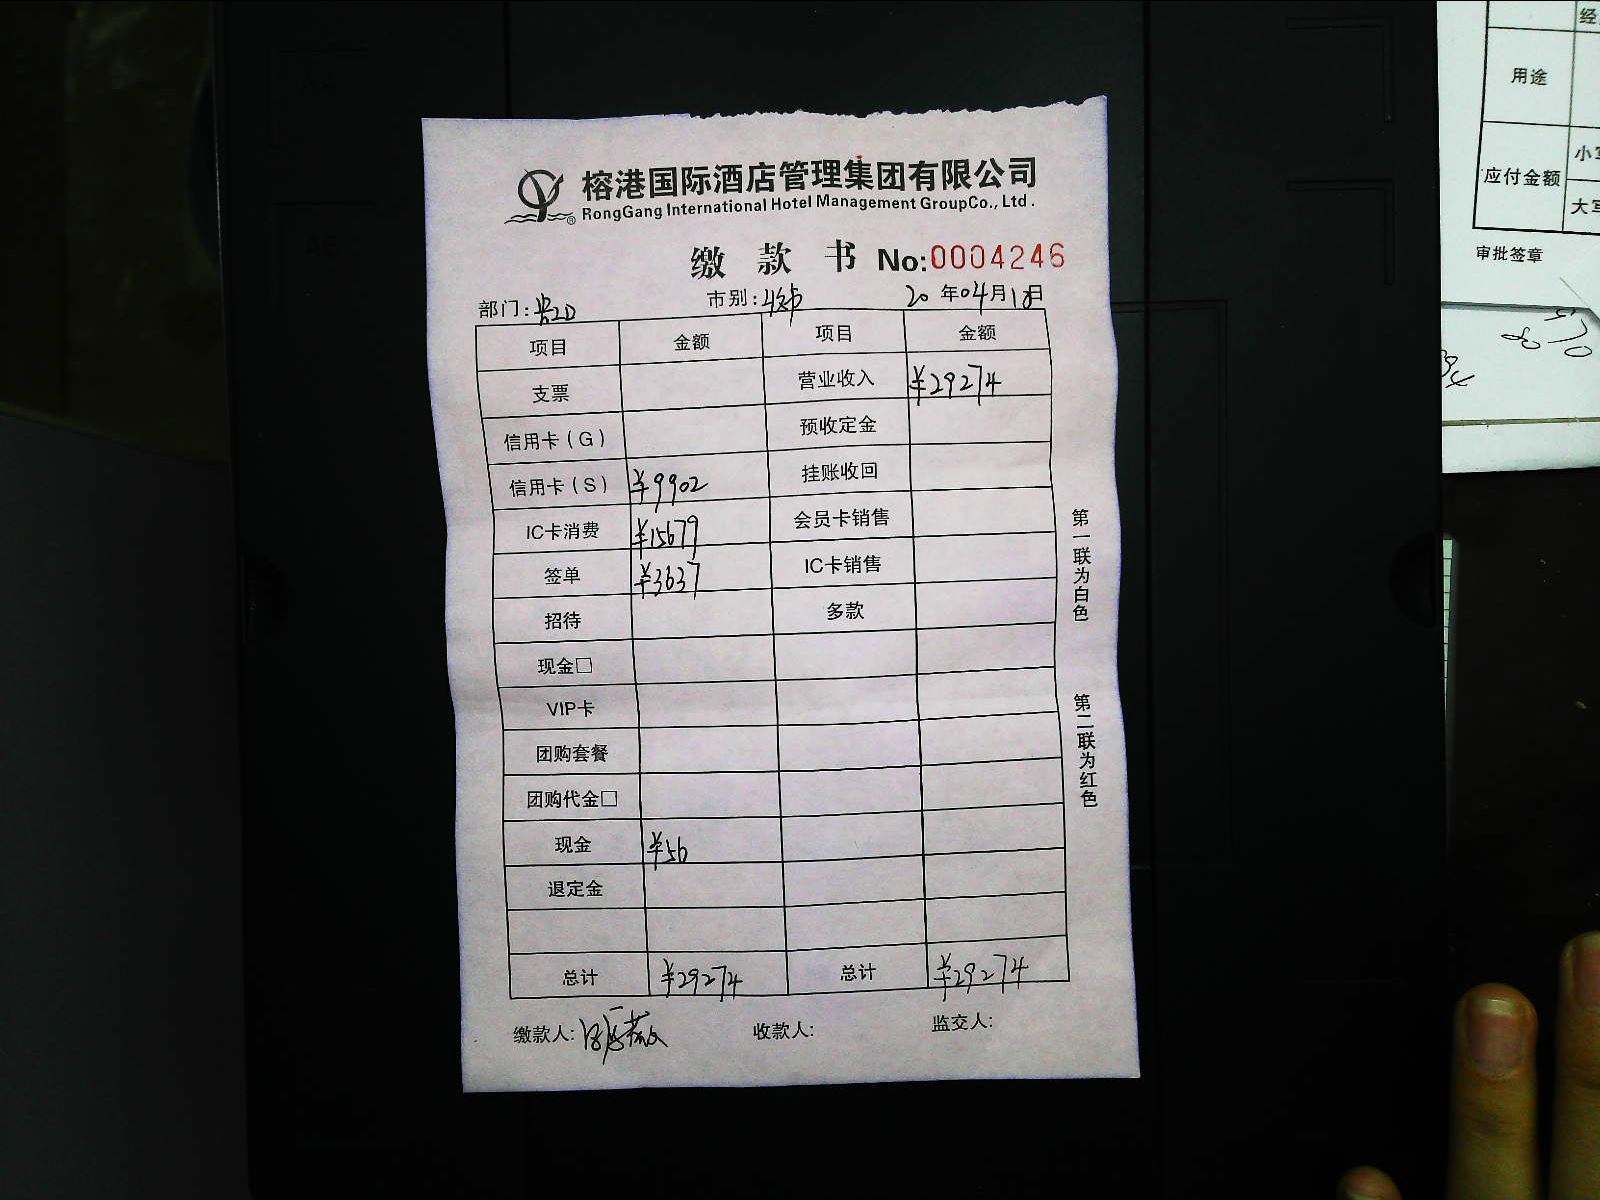 榕港国际酒店管理集团有限公司
RongGang International Hotel Management GroupCo., Ltd.
缴 款 书 No:0004246
部门: 市别: 20 年04月18日
项目 金额 项目 金额
支票 营业收入 ¥29274
信用卡(G) 预收定金
信用卡(S) ¥9902 挂账收回
IC卡消费 ¥15679 会员卡销售
签单 ¥3637 IC卡销售
招待 多款
现金□
VIP卡
团购套餐
团购代金□
现金 ¥56
退定金
总计 ¥29274 总计 ¥29274
缴款人: 收款人: 监交人:
第一联为白色
第二联为红色
经
用途
应付金额
小写
大写
审批签章